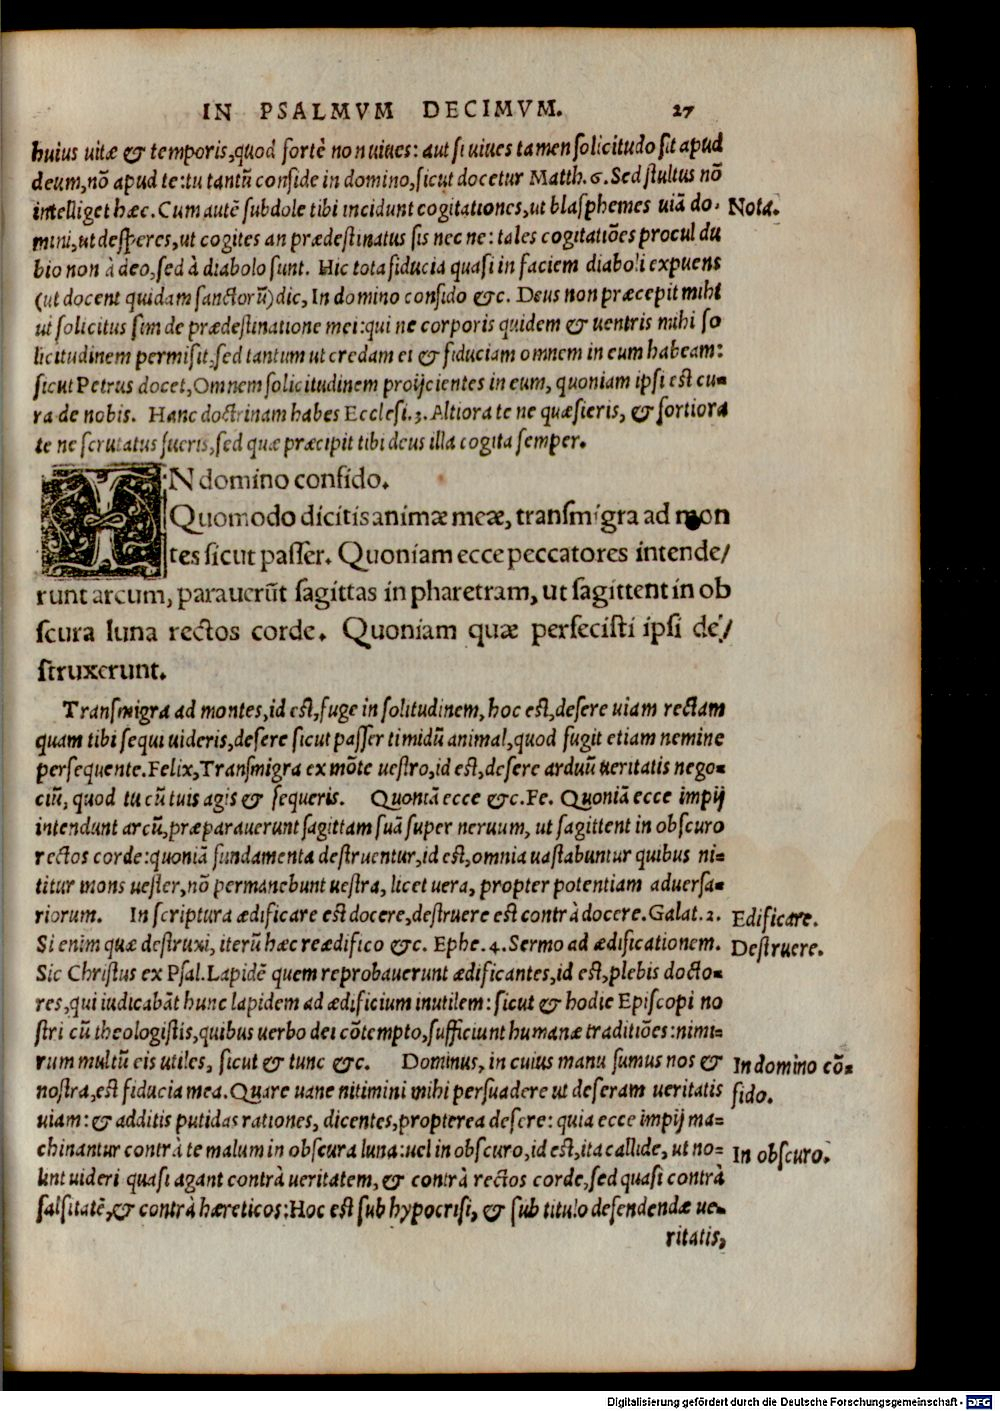 IN PSALMVM DECIMVM. 27
huius uitæ & temporis, quod fortè non uiues: aut si uiues tamen solicitudo sit apud
deum, nō apud te: tu tantū confide in domino, sicut docetur Matth. 6. Sed stultus nō
intelliget hæc. Cum autē subdole tibi incidunt cogitationes, ut blasphemes uiā do- Nota.
mini, ut desperes, ut cogites an prædestinatus sis nec ne: tales cogitatiōes procul du
bio non à deo, sed à diabolo sunt. Hic tota fiducia quasi in faciem diaboli expuens
(ut docent quidam sanctorū) dic, In domino confido &c. Deus non præcepit mihi
ut solicitus sim de prædestinatione mei: qui ne corporis quidem & uentris mihi so
licitudinem permisit, sed tantum ut credam ei & fiduciam omnem in eum habeam:
sicut Petrus docet, Omnem solicitudinem proijcientes in eum, quoniam ipsi est cu-
ra de nobis. Hanc doctrinam habes Ecclesi. 3. Altiora te ne quæsieris, & fortiora
te ne scrutatus fueris, sed quæ præcipit tibi deus illa cogita semper.
IN domino confido.
Quomodo dicitis animæ meæ, transmigra ad mon
tes sicut passer. Quoniam ecce peccatores intende/
runt arcum, parauerūt sagittas in pharetram, ut sagittent in ob
scura luna rectos corde. Quoniam quæ perfecisti ipsi de/
struxerunt.
Transmigra ad montes, id est, fuge in solitudinem, hoc est, desere uiam rectam
quam tibi sequi uideris, desere sicut passer timidū animal, quod fugit etiam nemine
persequente. Felix, Transmigra ex mōte uestro, id est, desere arduū ueritatis nego-
ciū, quod tu cū tuis agis & sequeris. Quoniā ecce &c. Fe. Quoniā ecce impij
intendunt arcū, præparauerunt sagittam suā super neruum, ut sagittent in obscuro
rectos corde: quoniā fundamenta destruentur, id est, omnia uastabuntur quibus ni-
titur mons uester, nō permanebunt uestra, licet uera, propter potentiam aduersa-
riorum. In scriptura ædificare est docere, destruere est contrà docere. Galat. 2. Edificare.
Si enim quæ destruxi, iterū hæc reædifico &c. Ephe. 4. Sermo ad ædificationem. Destruere.
Sic Christus ex Psal. Lapidē quem reprobauerunt ædificantes, id est, plebis docto-
res, qui iudicabāt hunc lapidem ad ædificium inutilem: sicut & hodie Episcopi no
stri cū theologistis, quibus uerbo dei cōtempto, sufficiunt humanæ traditiōes: nimi-
rum multū eis utiles, sicut & tunc &c. Dominus, in cuius manu sumus nos & In domino cō-
nostra, est fiducia mea. Quare uane nitimini mihi persuadere ut deseram ueritatis fido.
uiam: & additis putidas rationes, dicentes, propterea desere: quia ecce impij ma-
chinantur contrà te malum in obscura luna: uel in obscuro, id est, ita callide, ut no- In obscuro.
lint uideri quasi agant contrà ueritatem, & contrà rectos corde, sed quasi contrà
falsitatē, & contrà hæreticos: Hoc est sub hypocrisi, & sub titulo defendendæ ue-
ritatis,
Digitalisierung gefördert durch die Deutsche Forschungsgemeinschaft - DFG